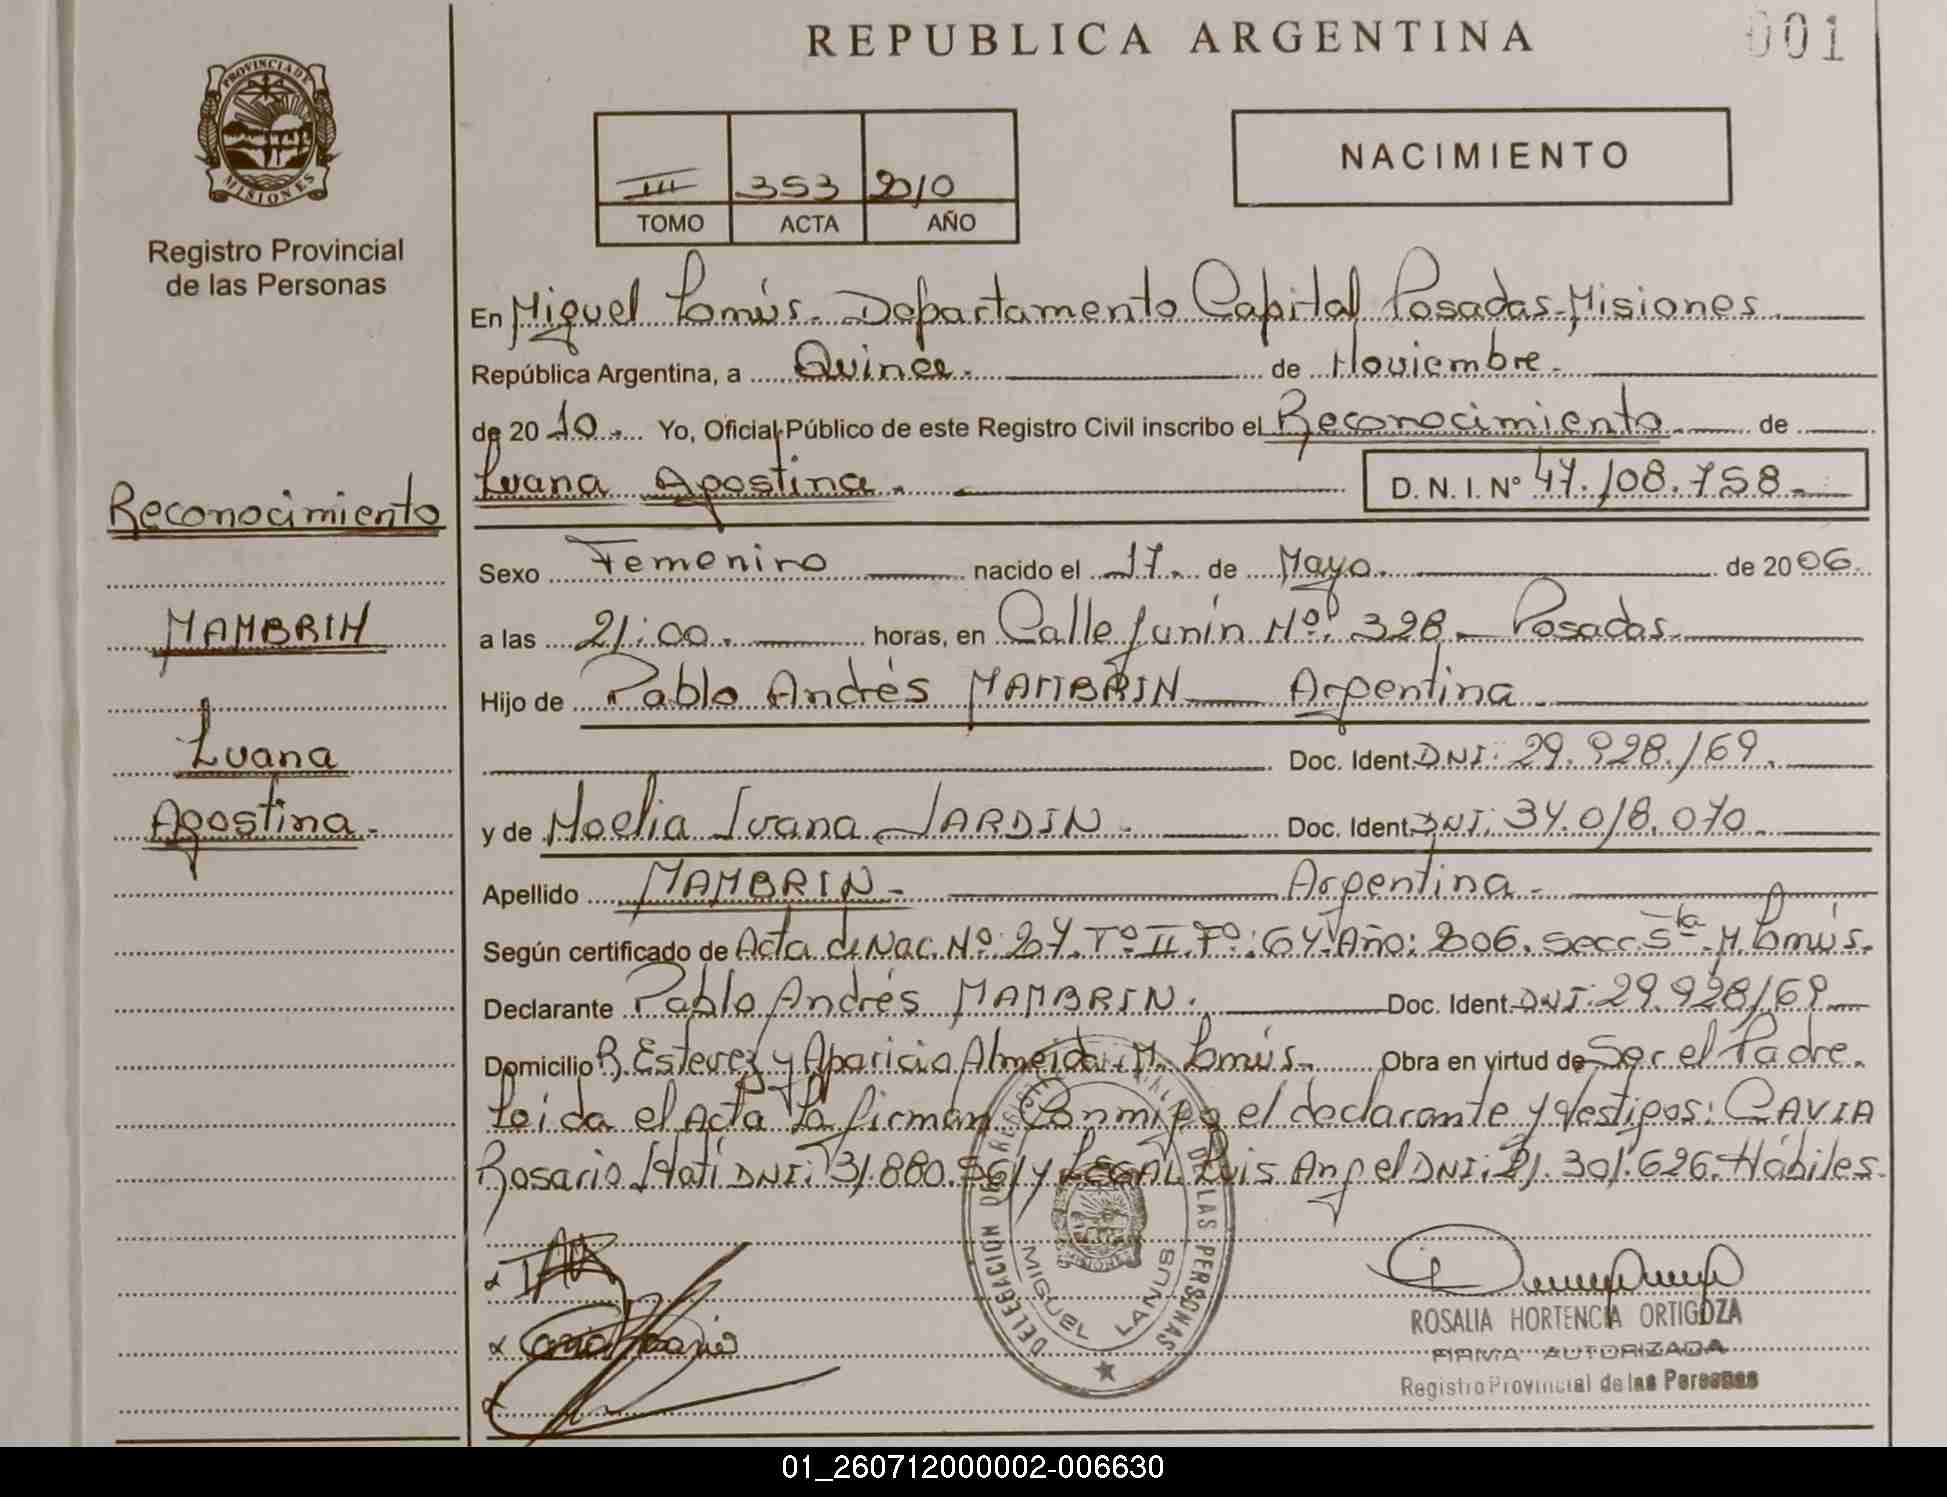 REPUBLICA ARGENTINA
001
PROVINCIA DE MISIONES
Registro Provincial
de las Personas
III 353 2010
TOMO ACTA AÑO
NACIMIENTO
En Miguel Lanús. Departamento Capital Posadas-Misiones.
República Argentina, a Quince. de Noviembre.
de 2010. Yo, Oficial Público de este Registro Civil inscribo el Reconocimiento de
Luana Agostina. D. N. I. Nº 47.108.758.
Reconocimiento
Sexo Femenino nacido el 17. de Mayo. de 2006.
MAMBRIN
a las 21:00. horas, en Calle Junín Nº: 328. Posadas.
Hijo de Pablo Andrés MAMBRIN Argentina
Luana
Doc. Ident. DNI: 29.928.169.
Agostina.
y de Noelia Ivana JARDIN. Doc. Ident. DNI: 34.018.070.
Apellido MAMBRIN. Argentina.
Según certificado de Acta de Nac. Nº: 27. Tº II. Fº: 64. Año: 2006. Secc. 5ta. M. Lanús.
Declarante Pablo Andrés MAMBRIN. Doc. Ident. DNI: 29.928169
Domicilio R. Estevez y Aparicio Almeida. M. Lanús. Obra en virtud de Ser el Padre.
Leida el Acta La firman Conmigo el declarante y testigos: GAVIA
Rosario Itatí DNI: 31.880.961 y LEGAL Luis Angel DNI: 21.301.626. Hábiles.
DELEGACION DEL REGISTRO DE LAS PERSONAS
MIGUEL LANUS
ROSALIA HORTENCIA ORTIGOZA
FIRMA AUTORIZADA
Registro Provincial de las Personas
01_260712000002-006630